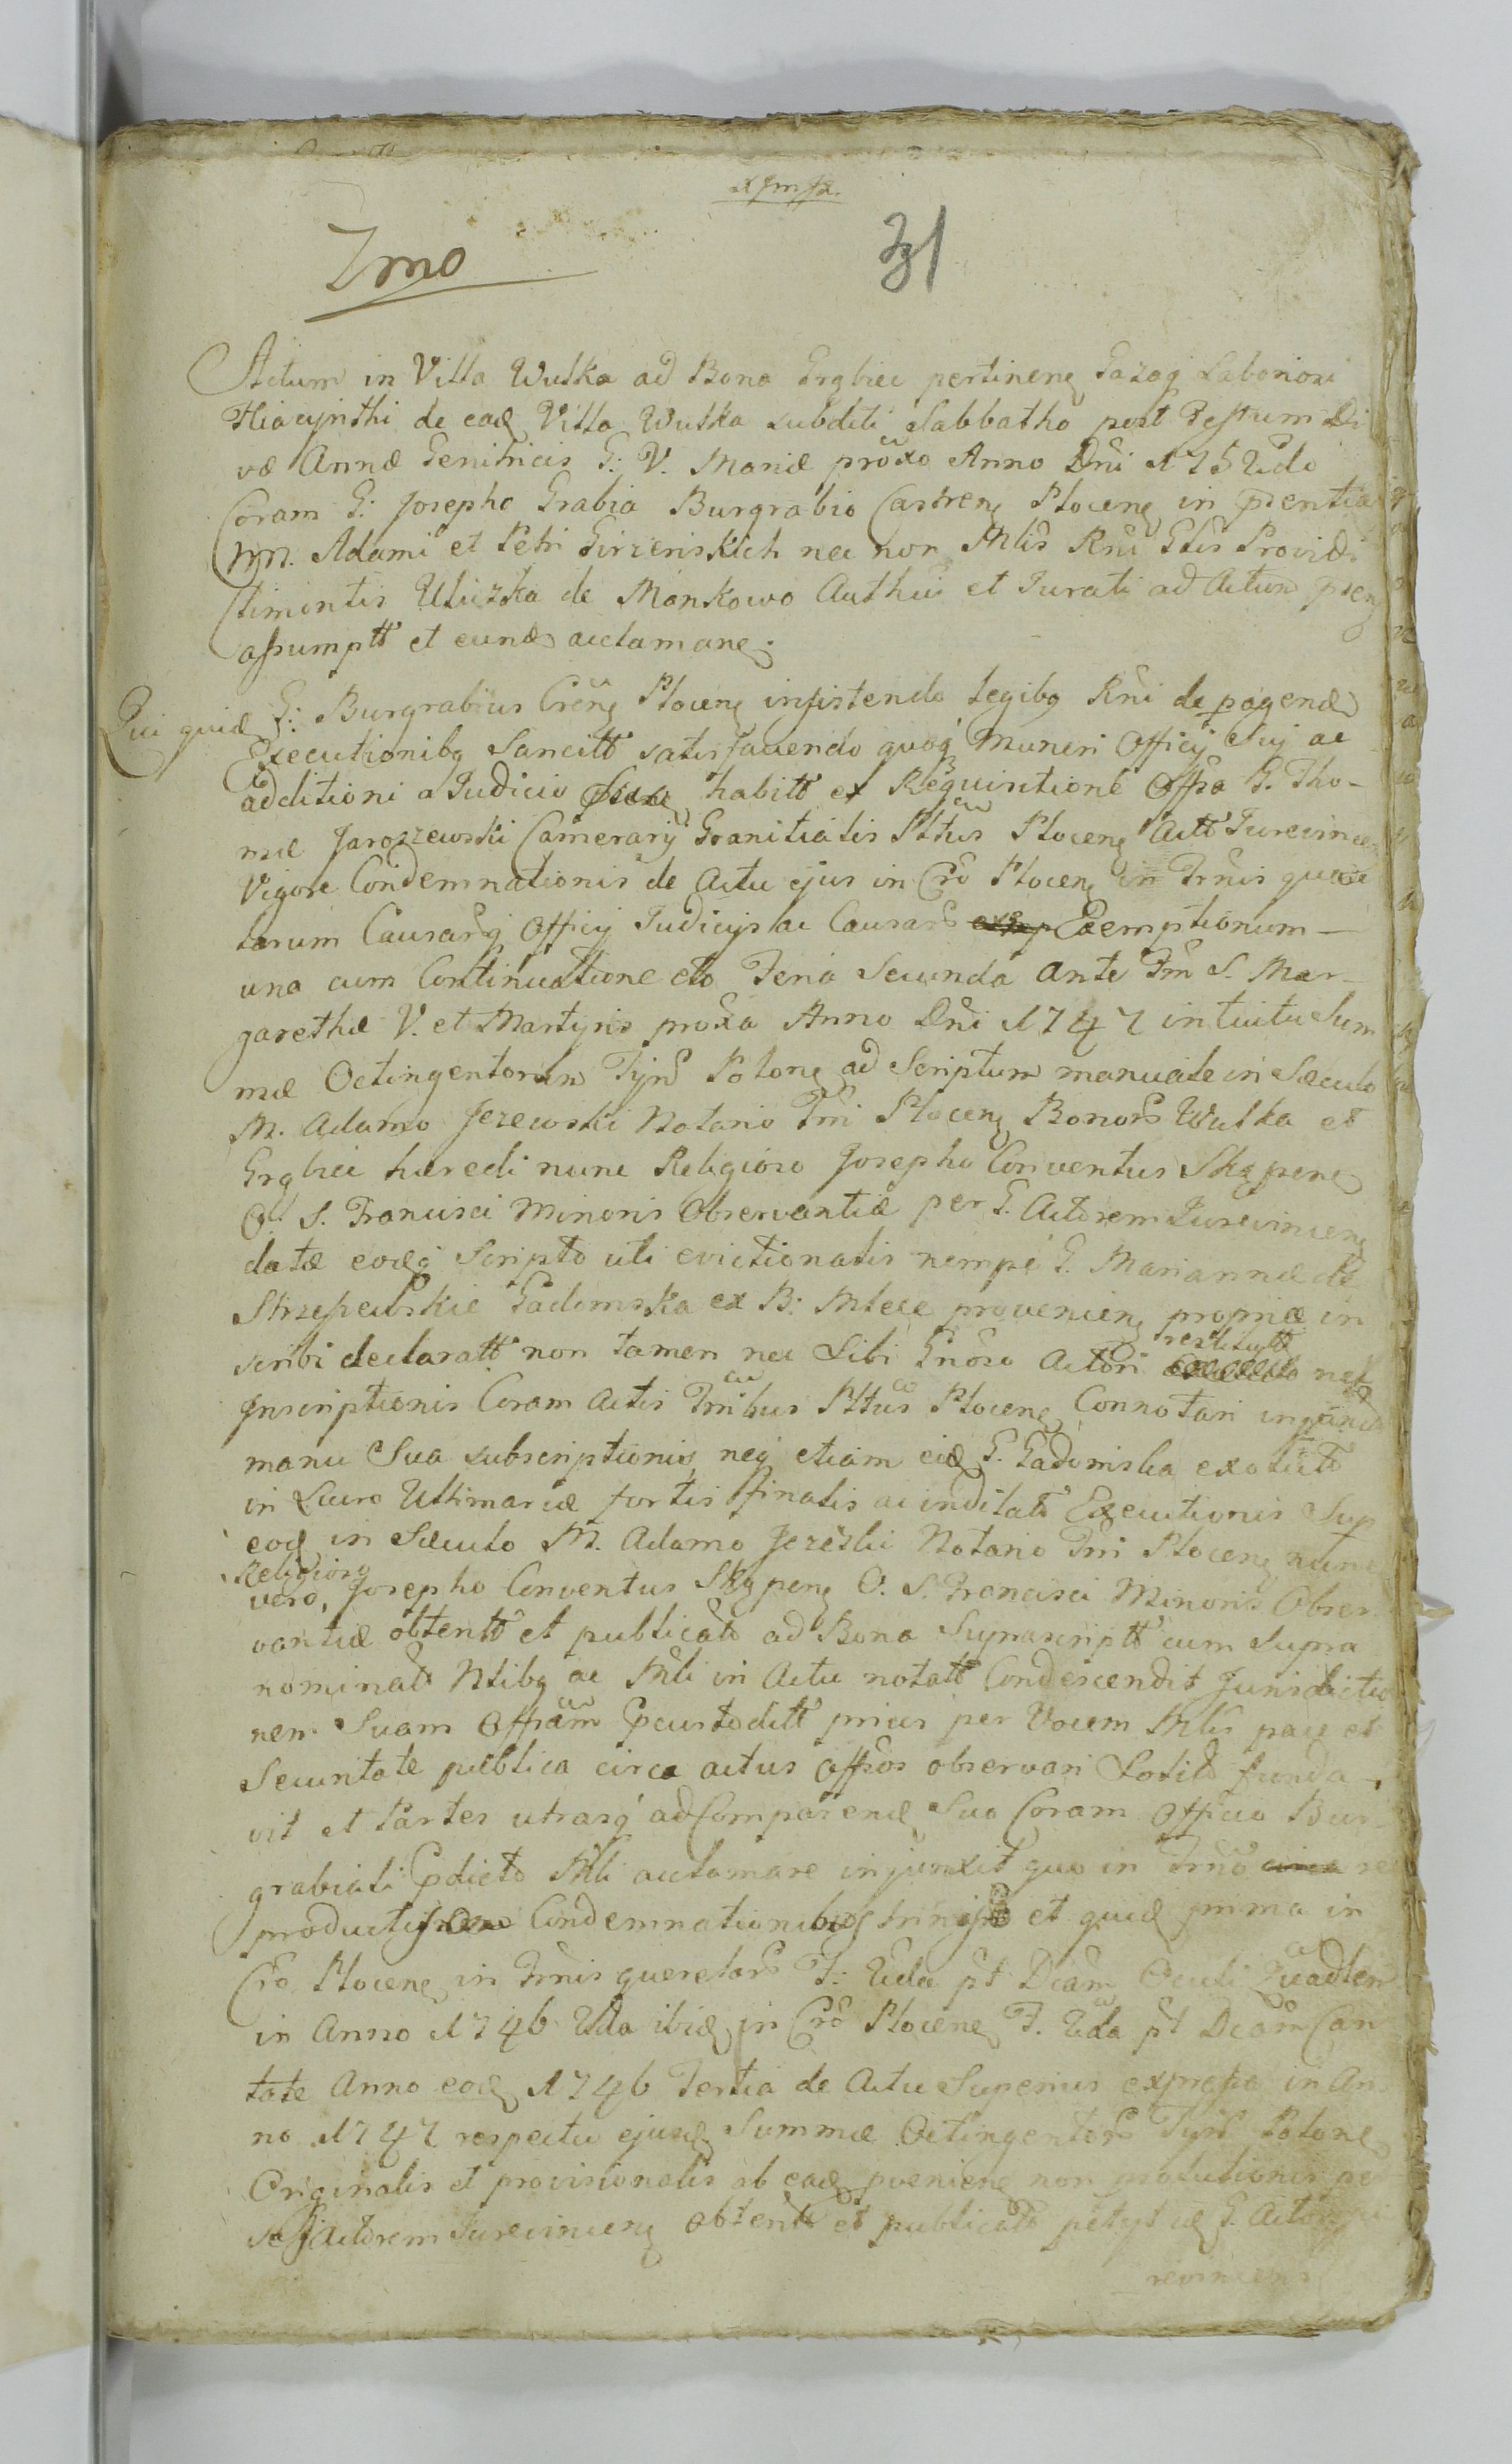 Imo
31
Actum in Villa Wulka ad Bona Grąbiec pertinenę Gazaę Laboriosi
Hiacynthi de eadę Villa Wulka subditi Sabbatho post Festum Di
væ Annæ Genitricis G: V. Mariæ proxo Anno Dni 1752do
Coram G: Josepho Grabia Burgrabio Castrenę Plocenę in psentia
MM. Adami et Petri Girzeńskich nec non Mlis Rni Glis Providi
Clementis Uliczka de Mańkowo Authui et Jurati ad Actum psenę
assumptt et eundę acclamanę.
Qui quidę G: Burgrabius Crenę Plocenę insistendo Legibg Rni de pagendę
Executionibg Sancitt satisfaciendo quoq Muneri Officij Sui ac
additioni a Judicio habitt ex Requisitione Offsa G. Tho-
mæ Jaroszewski Camerarij Granitialis Plttus Plocenę Actt Jurevincenę
Vigore Condemnationis de Actu ejus in Cro Plocenę in Trnis quere
larum Causarq Officij Judicijs ac Causars Exemptionum
una cum Continuatione etto Feria Secunda ante Fm S. Mar-
garethæ V. et Martyris proxa Anno Dni 1747 intuitu Sum
mæ Octingentorum Tynf Polonę ad Scriptum manuale in Sæculo
M. Adamo Jezewski Notario Tri Plocenę Bonors Wulka et
Grąbiec hæredi nunc Religioso Josepho Conventus Skępenę
O. S. Francisci Minoris Observantiæ per G. Actorem Jurevincenę
datæ eodęq Scripto uti evictionalis nempe G. Mariannæ de
Strzeszewskie Gadomska ex B: Mlece provenienę propriæ in
scribi declaratt non tamen nec Sibi Gnoso Actori restitutt neq
Inscriptionis Coram Actis Trribus Plttus Plocenę Connotari
manu Sua subscriptionis neq etiam eidę G. Gadomska exolutt
in Lucro Ultimariæ fortis finalis ac inditatt Executionis Sup
eodę in Sæculo M. Adamo Jezeski Notario Tri Plocenę nunc
Religioso
vero, Josepho Conventus Skępenę O. S. Francisci Minoris Obser
vantiæ obtentt et publicatt ad Bona Suprascriptt cum Supra
nominatt Nlibg ac Mli in Actu notatt Condescendit Jurisdictio
nem Suam Offsam Pcustoditt prius per Vocem Mlis pace et
Securitate publica circa actus offsos observari Solitt funda
vit et Partes utrasq ad Comparendę Suo Coram Officio Bur
grabiali Pdicto Mli acclamare injunxit quo in Trno re
productis Condemnationibg trinis et quidę prima in
Cro Plocenę in Trnis querelars F: 2da pt Dcam Oculi Quadlem
in Anno 1746 2da ibidę in Cro Plocenę F. 2da pt Dcam Can
tate Anno eodę 1746 Tertia de Actu Superius expressa in An
no 1747 respectu ejusdę Summæ Octingentors Tynf Polonę
Originalis et provisionalis ab eadę pvenienę non solutionis per
se Actorem Jurevincenę obtentt et publicatt petijt idę G. Actor Ju
revincens